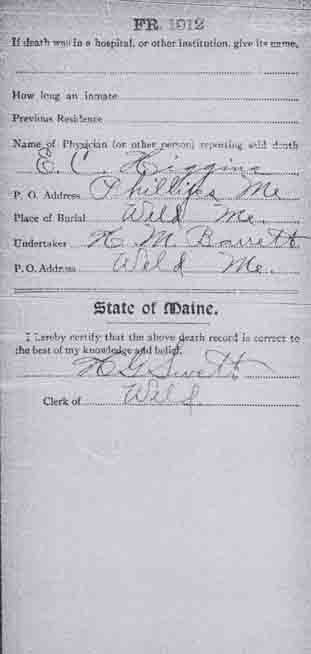 FR. 1912
If death was in a hospital, or other institution, give its name,
How long an inmate
Previous Residence
Name of Physician (or other person) reporting said death
E. C. Higgins
P. O. Address Phillips Me
Place of Burial Weld Me.
Undertaker H. M. Barrett
P. O. Address Weld Me.
State of Maine.
I hereby certify that the above death record is correct to
the best of my knowledge and belief.
Swett
Clerk of Weld